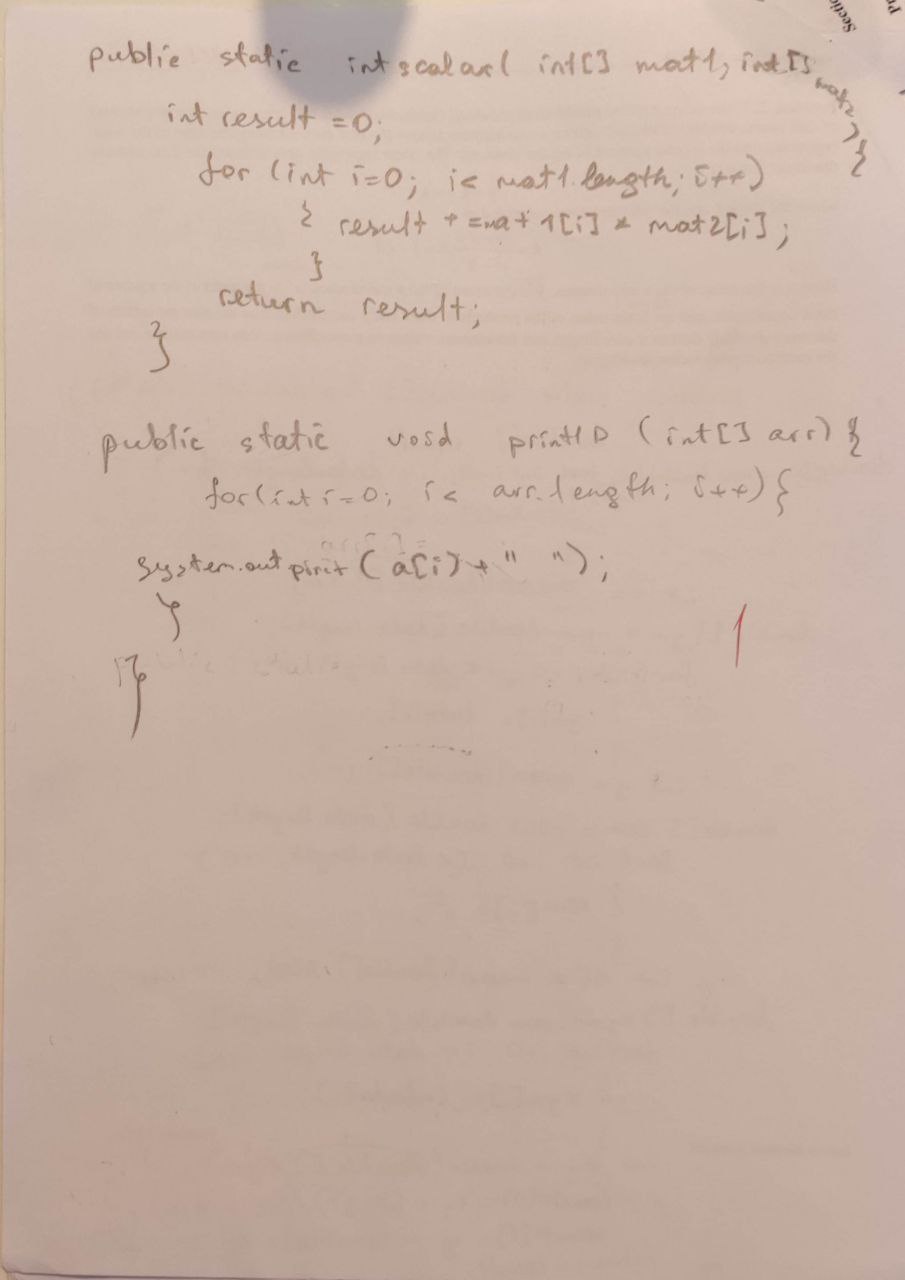 public static int scalar( int[] mat1, int[] mat2) {
int result = 0;
for (int i=0; i< mat1.length; i++)
{ result + = mat 1[i] * mat2[i];
}
return result;
}
public static void print1D (int[] arr) {
for(int i=0; i< arr.length; i++) {
system.out print ( a[i] + " ");
}
}
1
Section